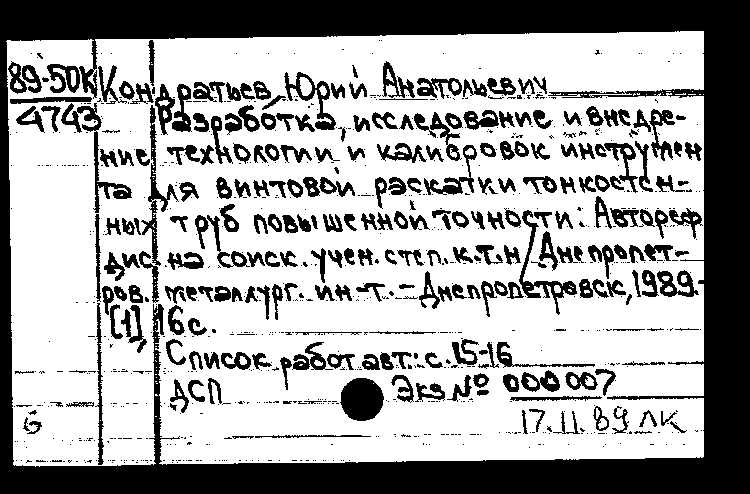 89-50К Кондратьев, Юрий Анатольевич
4743 Разработка, исследование и внедре-
ние технологии и калибровок инструмен
та для винтовой раскатки тонкостен-
ных труб повышенной точности: Автореф
дис. на соиск. учен. степ. к.т.н / Днепропет-
ров. металлург. ин-т. - Днепропетровск, 1989.-
[1], 16с.
Список работ авт.: с. 15-16
ДСП Экз № 000007
6 17.11.89 ЛК